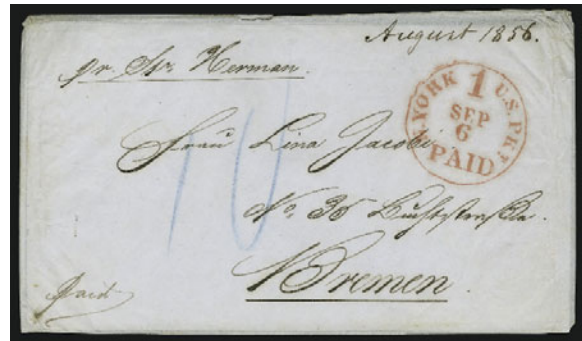 August 1856.
pr. Str. Herman.
N. YORK 1 U.S. PKT
SEP
6
PAID
10
Frau Lina Jacobi
No. 36 Buchtstraße.
Bremen.
Paid